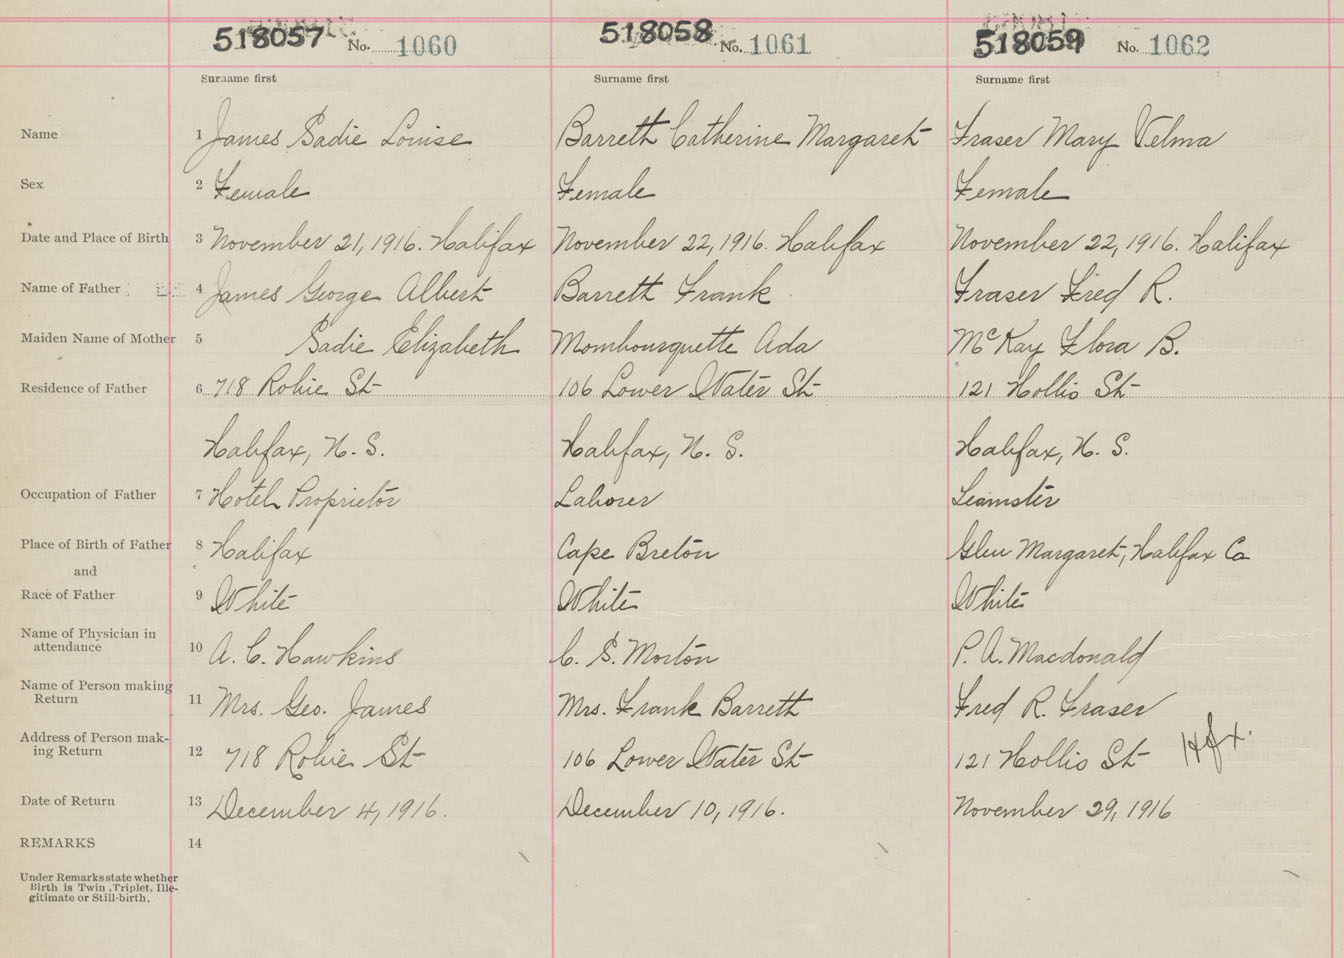 518057 No. 1060 518058 No. 1061 518059 No. 1062
Surname first Surname first Surname first
Name 1 James Sadie Louise Barrett Catherine Margaret Fraser Mary Velma
Sex 2 Female Female Female
Date and Place of Birth 3 November 21, 1916. Halifax November 22, 1916. Halifax November 22, 1916. Halifax
Name of Father 4 James George Albert Barrett Frank Fraser Fred R.
Maiden Name of Mother 5 Sadie Elizabeth Mombourquette Ada McKay Flora B.
Residence of Father 6 718 Robie St 106 Lower Water St 121 Hollis St
Halifax, N. S. Halifax, N. S. Halifax, N. S.
Occupation of Father 7 Hotel Proprietor Laborer Teamster
Place of Birth of Father 8 Halifax Cape Breton Glen Margaret, Halifax Co
and
Race of Father 9 White White White
Name of Physician in
attendance 10 A. C. Hawkins C. S. Morton P. A. Macdonald
Name of Person making
Return 11 Mrs. Geo. James Mrs. Frank Barrett Fred R. Fraser
Address of Person mak-
ing Return 12 718 Robie St 106 Lower Water St 121 Hollis St Hfx.
Date of Return 13 December 4, 1916. December 10, 1916. November 29, 1916
REMARKS 14
Under Remarks state whether
Birth is Twin, Triplet, Ille-
gitimate or Still-birth.